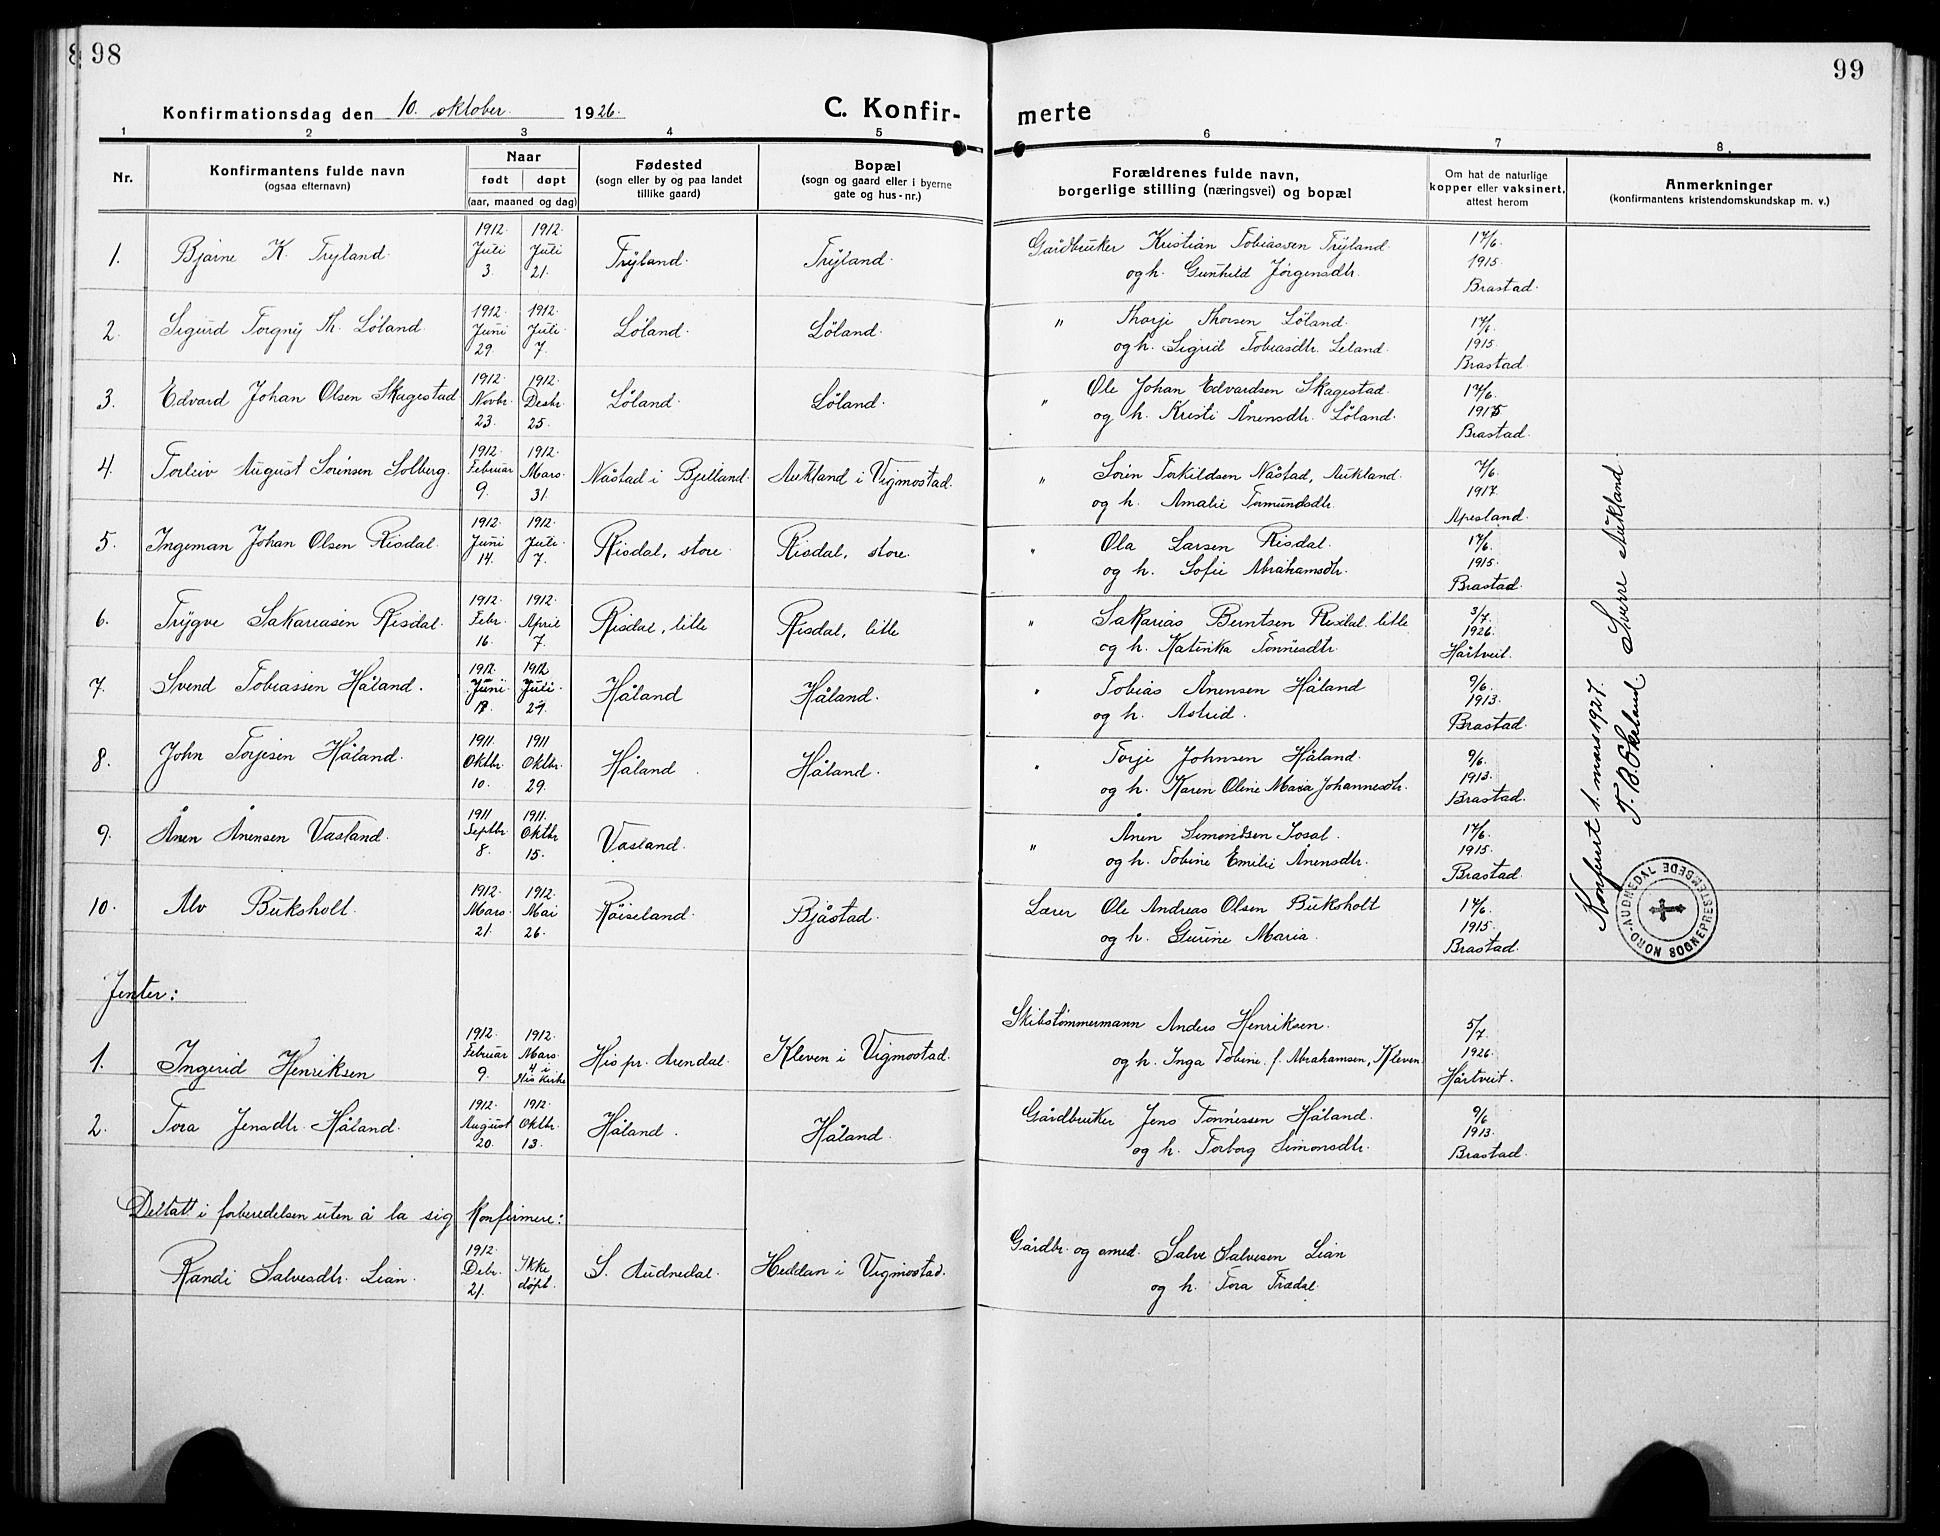 98
99
Konfirmationsdag den 10. oktober. 1926.
C. Konfir-
merte
1 2 3 4 5 6 7 8.
Nr.
Konfirmantens fulde navn
(ogsaa efternavn)
Naar
født døpt
(aar, maaned og dag)
Fødested
(sogn eller by og paa landet
tillike gaard)
Bopæl
(sogn og gaard eller i byerne
gate og hus-nr.)
Forældrenes fulde navn,
borgerlige stilling (næringsvei) og bopæl
Om hat de naturlige
kopper eller vaksinert,
attest herom
Anmerkninger
(konfirmantens kristendomskundskap m. v.)
1912. 1912. 17/6.
1. Bjarne K. Tryland. Juli Juli Tryland. Tryland. Gardbruker Kristian Tobiassen Tryland. 1915.
3. 21. og h. Gunhild Jørgensdtr. Brastad.
1912. 1912. 17/6.
2. Sigurd Torgny Th. Löland. Juni Juli Löland. Löland. " Thorje Thorsen Löland. 1915.
29. 7. og h. Sigrid Tobiasdtr. Leland. Brastad.
1912. 1912. 17/6.
3. Edvard Johan Olsen Skagestad Novbr. Desbr. Löland. Löland. " Ole Johan Edvardsen Skagestad. 1915
23. 25. og h. Kristi Ånensdtr. Löland. Brastad.
1912. 1912. 7/6.
4. Torleiv August Sörensen Solberg. Februar Mars. Nåstad i Bjelland. Aukland i Vigmostad. " Sörin Torkildsen Nåstad, Aukland. 1917.
9. 31. og h. Amalie Tomundsdtr. Apesland.
1912. 1912. 17/6.
5. Ingeman Johan Olsen Risdal. Juni Juli. Risdal, store. Risdal, store. " Ola Larsen Risdal. 1915.
14. 7. og h. Sofie Abrahamsdtr. Brastad.
1912. 1912. 3/7.
6. Trygve Sakariasen Risdal. Febr. April Risdal, litle Risdal, litle " Sakarias Berntsen Risdal litle 1926.
16. 7. og h. Katinka Tönnesdtr. Hårtveit.
1912. 1912 9/6.
7. Svend Tobiassen Håland. Juni. Juli. Håland Håland. " Tobias Ånensen Håland 1913.
og h. Astrid. Brastad.
1911. 1911 9/6.
8. John Torjesen Håland. Oktbr. Oktbr. Håland. Håland. " Torje Johnsen Håland. 1913.
10. 29. og h. Karen Oline Maria Johannesdtr. Brastad.
1911 1911. 17/6.
9. Ånen Ånensen Vasland. Septbr. Oktbr Vasland. " Ånen Simondsen Josal. 1915.
8. 15. og h. Tobine Emilie Ånensdtr. Brastad.
1912. 1912. 17/6.
10. Alv Buksholt. Mars. Mai Röiseland. Bjåstad. Lærer Ole Andreas Olsen Buksholt 1915.
21. 26. og h. Gurine Maria. Brastad.
Jenter:
1912. 1912. Skibstømmermann Anders Henriksen. 5/7.
1. Ingerid Henriksen Februar Mars. His pr. Arendal. Kleven i Vigmostad. og h. Inga Tobine f. Abrahamsen, Kleven 1926.
9. 4 i His kirke Hårtveit.
1912. 1912. 9/6.
2. Tora Jensdtr. Håland. August Oktbr. Håland. Håland. Gårdbruker Jens Tönnessen Håland. 1913.
20. 13. og h. Torborg Simonsdtr. Brastad.
Deltatt i forberedelsen uten å la sig konfirmere:
1912. Gårdbr. og smed. Salve Salvesen Lian
Randi Salvesdtr. Lian. Debr. Ikke S. Audnedal. Heddan i Vigmostad. og h. Tora Trædal.
21. døpt.
Konferert 1. mars 1927.
T. B. Ekeland. Sverre Aukland.
NORD-AUDNEDAL SOGNEPRESTEMBEDE